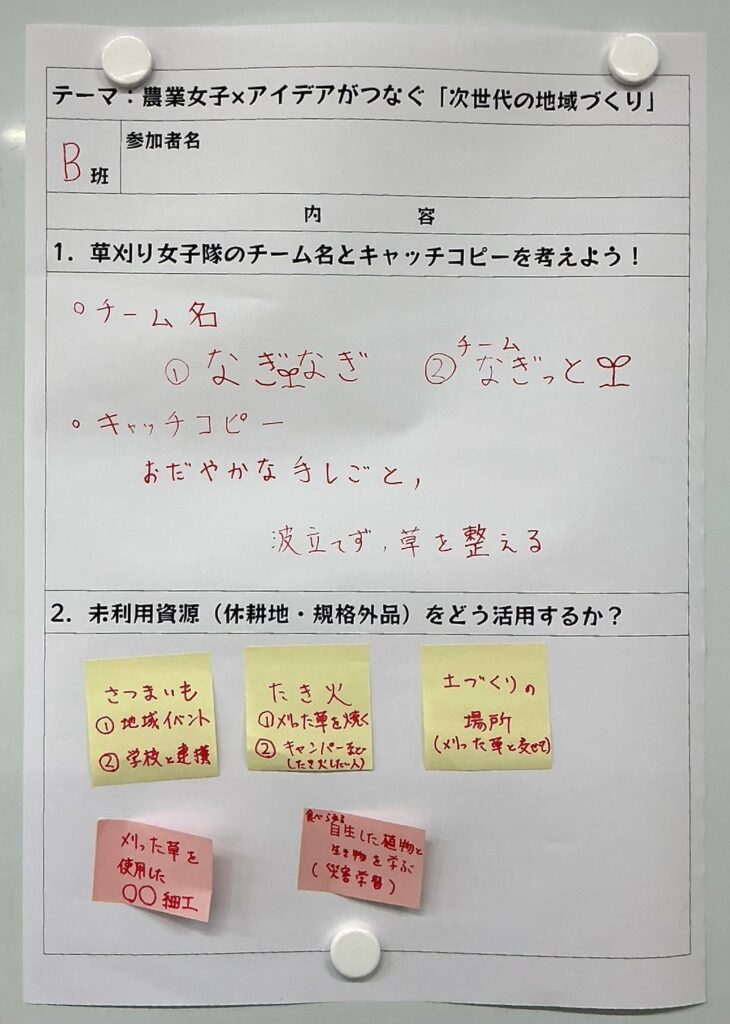 テーマ：農業女子×アイデアがつなぐ「次世代の地域づくり」
B班
参加者名
内　容
1．草刈り女子隊のチーム名とキャッチコピーを考えよう！
○チーム名
① なぎなぎ
② チームなぎっと
○キャッチコピー
おだやかな手しごと,
波立てず,草を整える
2．未利用資源（休耕地・規格外品）をどう活用するか？
さつまいも
①地域イベント
②学校と連携
たき火
①刈った草を焼く
②キャンパー
(したき火したい人)
土づくりの
場所
(刈った草と交ぜて)
刈った草を
使用した
○○細工
食べられる
自生した植物と
生き物を学ぶ
(災害学習)